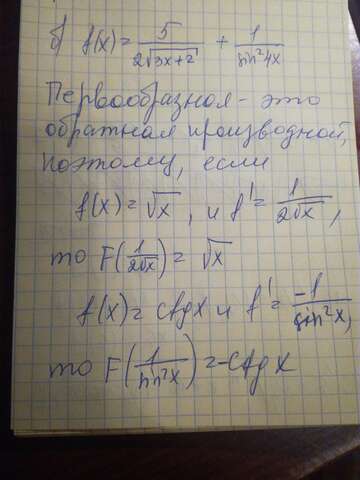 б) f(x) = 5/(2√(3x+2)) + 1/(sin²4x)
Первообразная - это
обратная производной,
поэтому, если
f(x) = √x , и f' = 1/(2√x) ,
то F(1/(2√x)) = √x
f(x) = ctg x и f' = -1/(sin²x) ,
то F(1/(sin²x)) = -ctg x